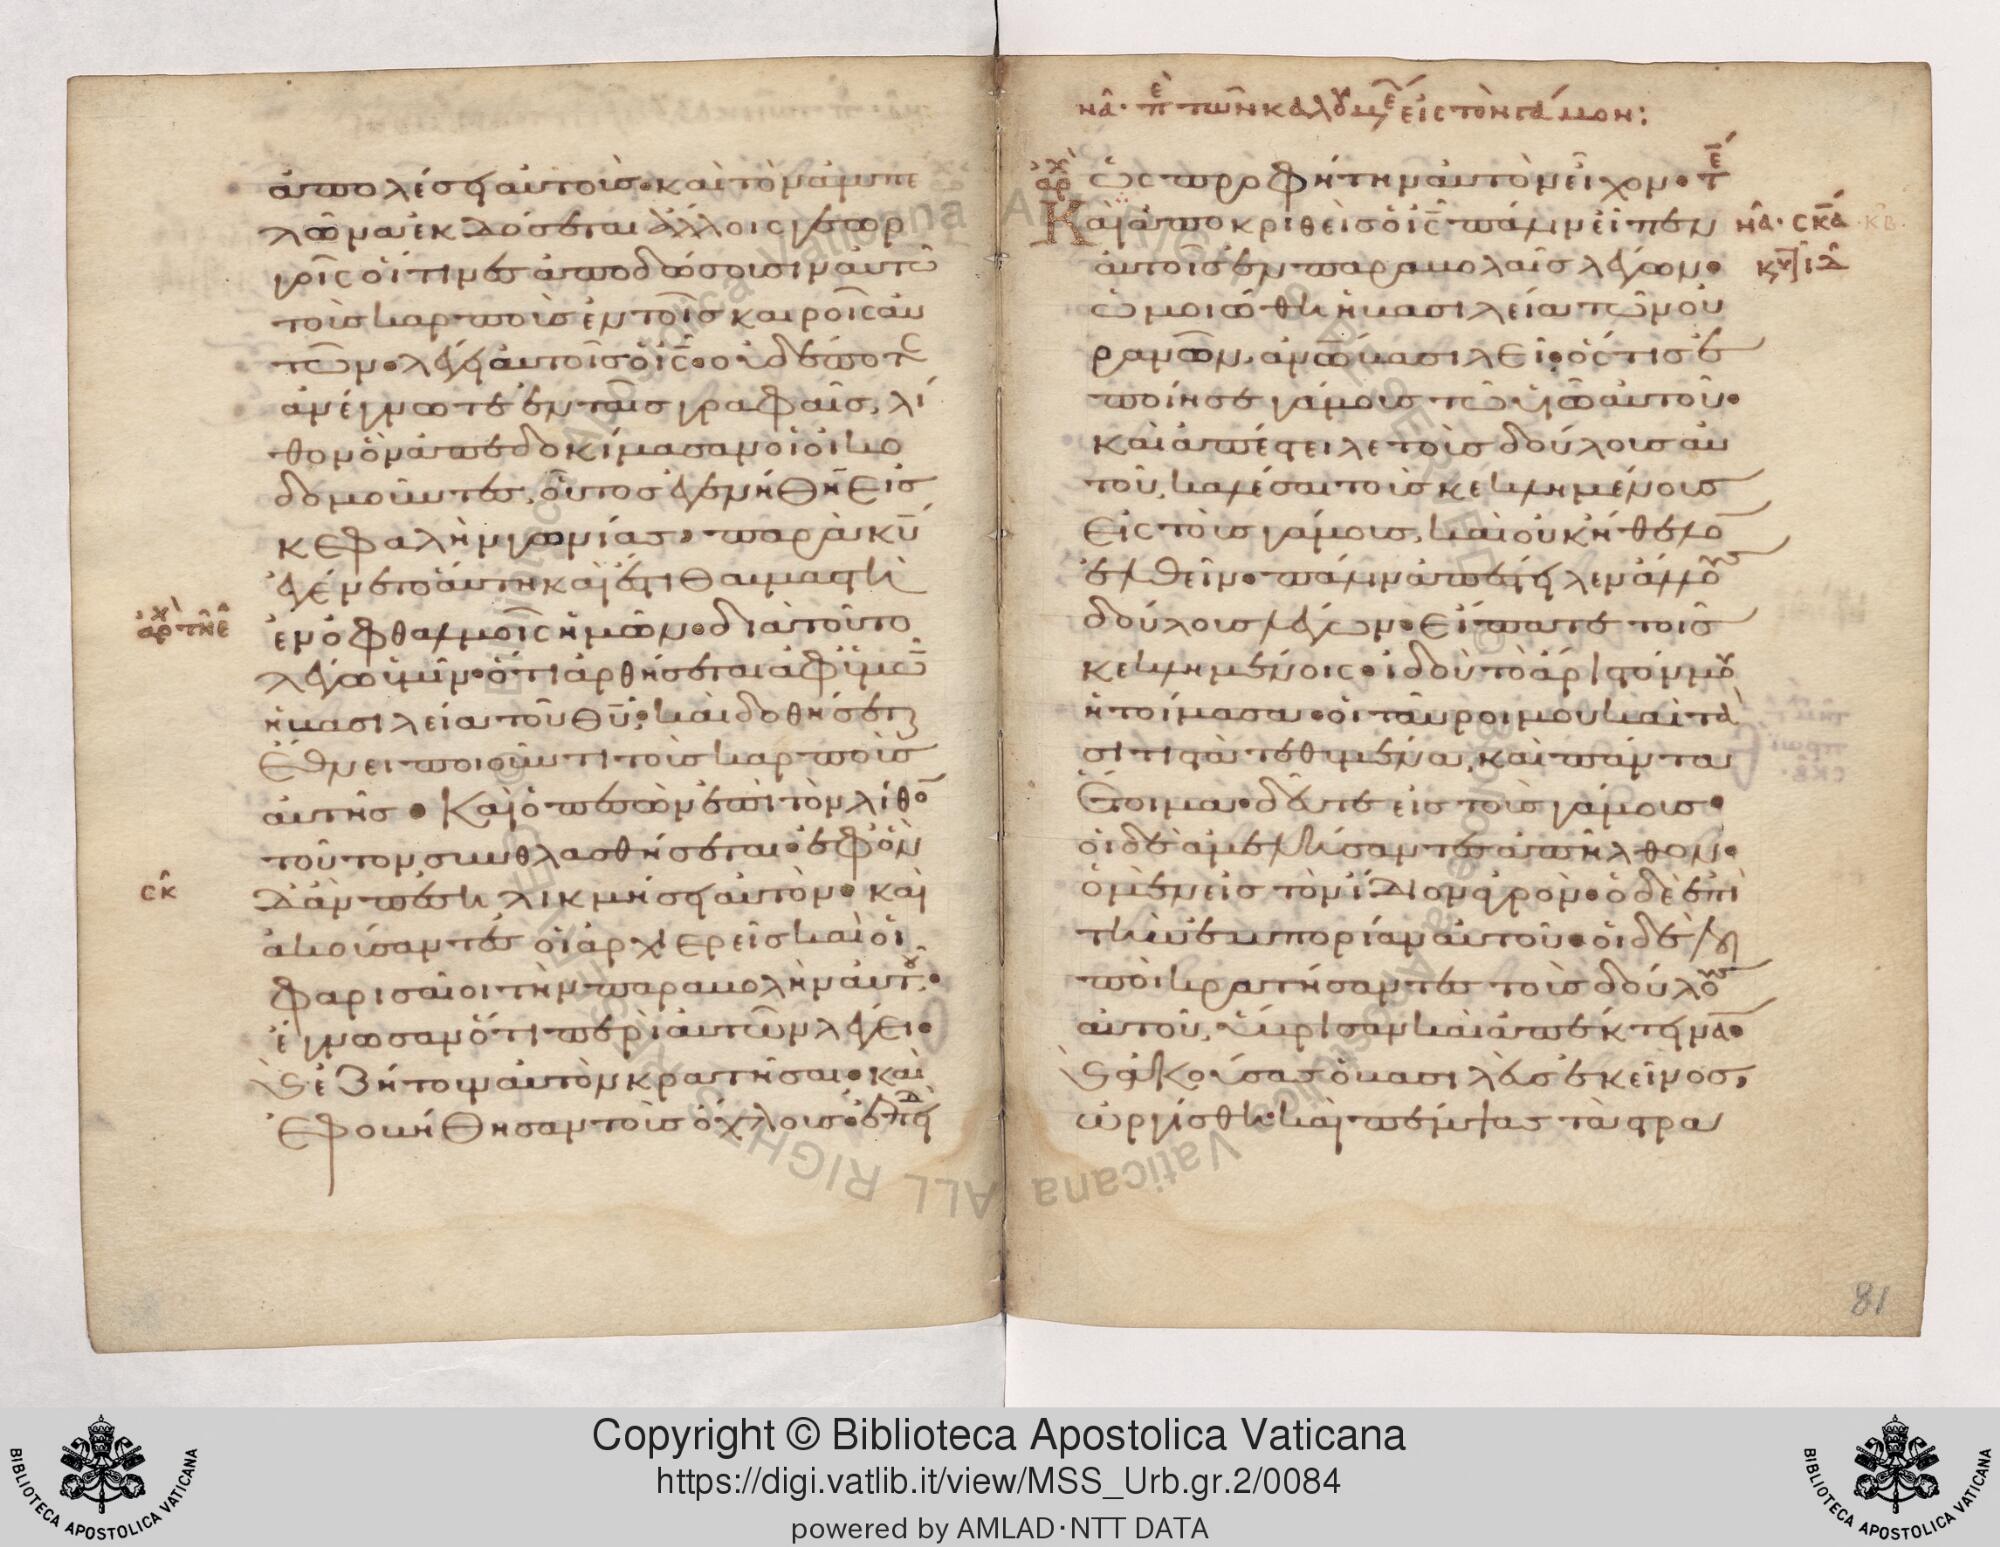 ἀπολέσει αὐτούς· καὶ τὸν ἀμπε
λῶνα ἐκδόσεται ἄλλοις γεωρ
γοῖς οἵτινες ἀποδώσουσιν αὐτῶ
τοὺς καρποὺς ἐν τοῖς καιροῖς αὐ
τῶν· λέγει αὐτοῖς ὁ ις· οὐδέποτε
ἀνέγνωτε ἐν ταῖς γραφαῖς, λί
θον ὃν ἀπεδοκίμασαν οἱ οἰκο
δομοῦντες, οὗτος ἐγενήθη εἰς
κεφαλὴν γωνίας· παρὰ κυ
ἐγένετο αὕτη καὶ ἔστι θαυμαστὴ
ἀρχ τῆ ε
ἐν ὀφθαλμοῖς ἡμῶν· διὰ τοῦτο
λέγω ὑμῖν· ὅτι ἀρθήσεται ἀφ' ὑμῶν
ἡ βασιλεία τοῦ θυ· καὶ δοθήσεται
ἔθνει ποιοῦντι τοὺς καρποὺς
αὐτῆς· Καὶ ὁ πεσὼν ἐπὶ τὸν λίθον
τοῦτον συνθλασθήσεται· ἐφ' ὃν
σκ
δ' ἂν πέση λικμήσει αὐτόν· καὶ
ἀκούσαντες οἱ ἀρχιερεῖς καὶ οἱ
φαρισαῖοι τὴν παραβολὴν αὐτοῦ·
ἔγνωσαν ὅτι περὶ αὐτῶν λέγει·
Καὶ ἐζήτουν αὐτὸν κρατῆσαι· καὶ
ἐφοβήθησαν τοὺς ὄχλους· ἐπειδὴ
να· πε τῶν καλουμέ εἰς τὸν γάμον:
ἀρχ ὡς προφήτην αὐτὸν εἶχον· τε
Καὶ ἀποκριθεὶς ὁ ις πάλιν εἶπεν
να· σκα
αὐτοῖς ἐν παραβολαῖς λέγων·
κυ ιδ
ὡμοιώθη ἡ βασιλεία τῶν οὐ
ρανῶν, ἀνω βασιλεῖ· ὅστις ἐ
ποίησε γάμους τῶ υἱῶ αὐτοῦ·
καὶ ἀπέστειλε τοὺς δούλους αὐ
τοῦ, καλέσαι τοὺς κεκλημένους
εἰς τοὺς γάμους, καὶ οὐκ ἤθελον
ἐλθεῖν· πάλιν ἀπέστειλεν ἄλλους
δούλους λέγων· Εἴπατε τοῖς
κεκλημένοις· ἰδοὺ τὸ ἄριστόν μου
ἡτοίμασα· οἱ ταῦροι μου καὶ τὰ
σιτιστὰ τεθυμένα, καὶ πάντα
ἕτοιμα· δεῦτε εἰς τοὺς γάμους·
οἱ δὲ ἀμελήσαντες ἀπῆλθον·
ὁ μὲν εἰς τὸν ἴδιον ἀγρόν· ὁ δὲ ἐπὶ
τὴν ἐμπορίαν αὐτοῦ· οἱ δὲ λοι
ποὶ κρατήσαντες τοὺς δούλους
αὐτοῦ, ὕβρισαν καὶ ἀπέκτειναν·
Καὶ ἀκούσας ὁ βασιλεὺς ἐκεῖνος,
ὠργίσθη· καὶ πέμψας τὰ στρα
81
Copyright © Biblioteca Apostolica Vaticana
https://digi.vatlib.it/view/MSS_Urb.gr.2/0084
powered by AMLAD·NTT DATA
BIBLIOTECA APOSTOLICA VATICANA
BIBLIOTECA APOSTOLICA VATICANA